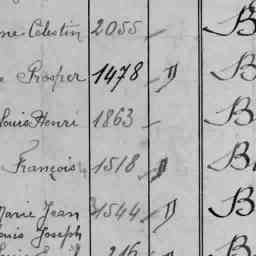 ne Célestin 2055 — B
e Prosper 1478 — D B
Louis Henri 1863 — B
François 1518 D B
Marie Jean 1544 — D B
Louis Joseph
216 B